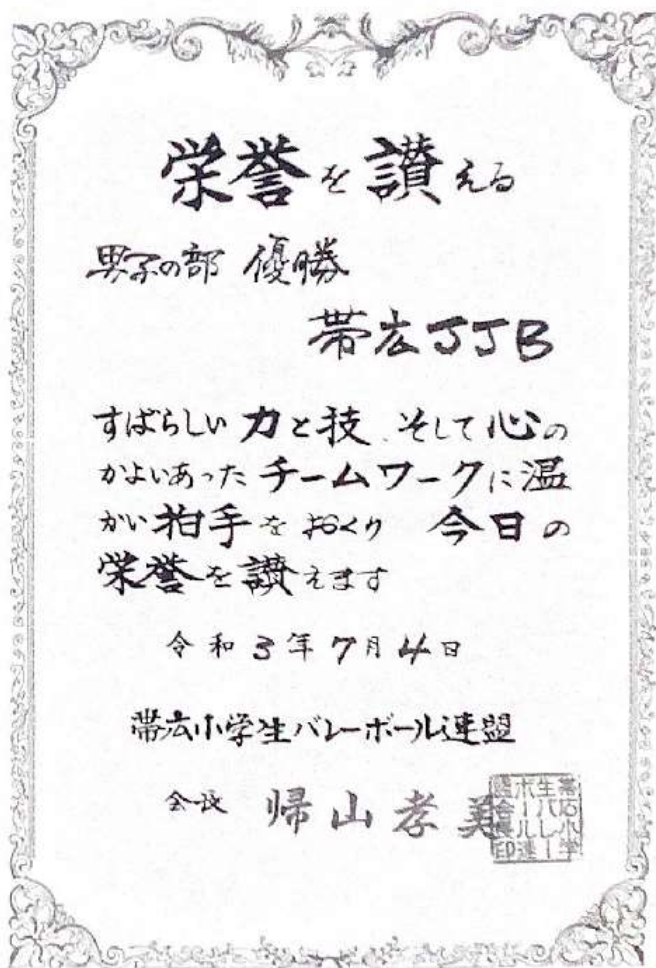 栄誉を讃える
男子の部 優勝
帯広JJB
すばらしい力と技、そして心の
かよいあったチームワークに温
かい拍手をおくり 今日の
栄誉を讃えます
令和3年7月4日
帯広小学生バレーボール連盟
会長 帰山孝美